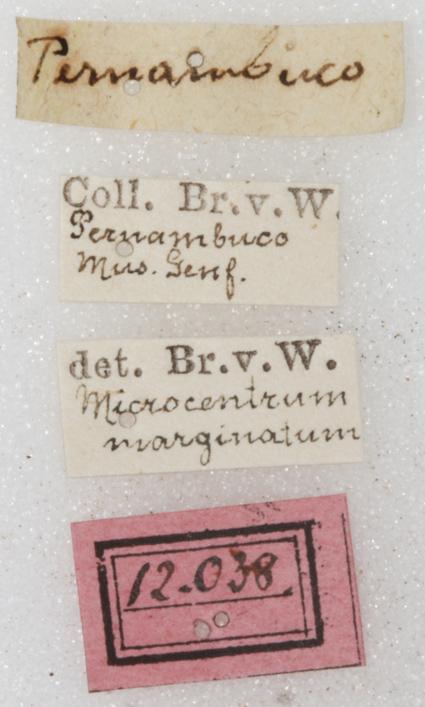 Pernambuco
Coll. Br.v.W.
Pernambuco
Mus. Genf.
det. Br.v.W.
Microcentrum
marginatum
12.038.